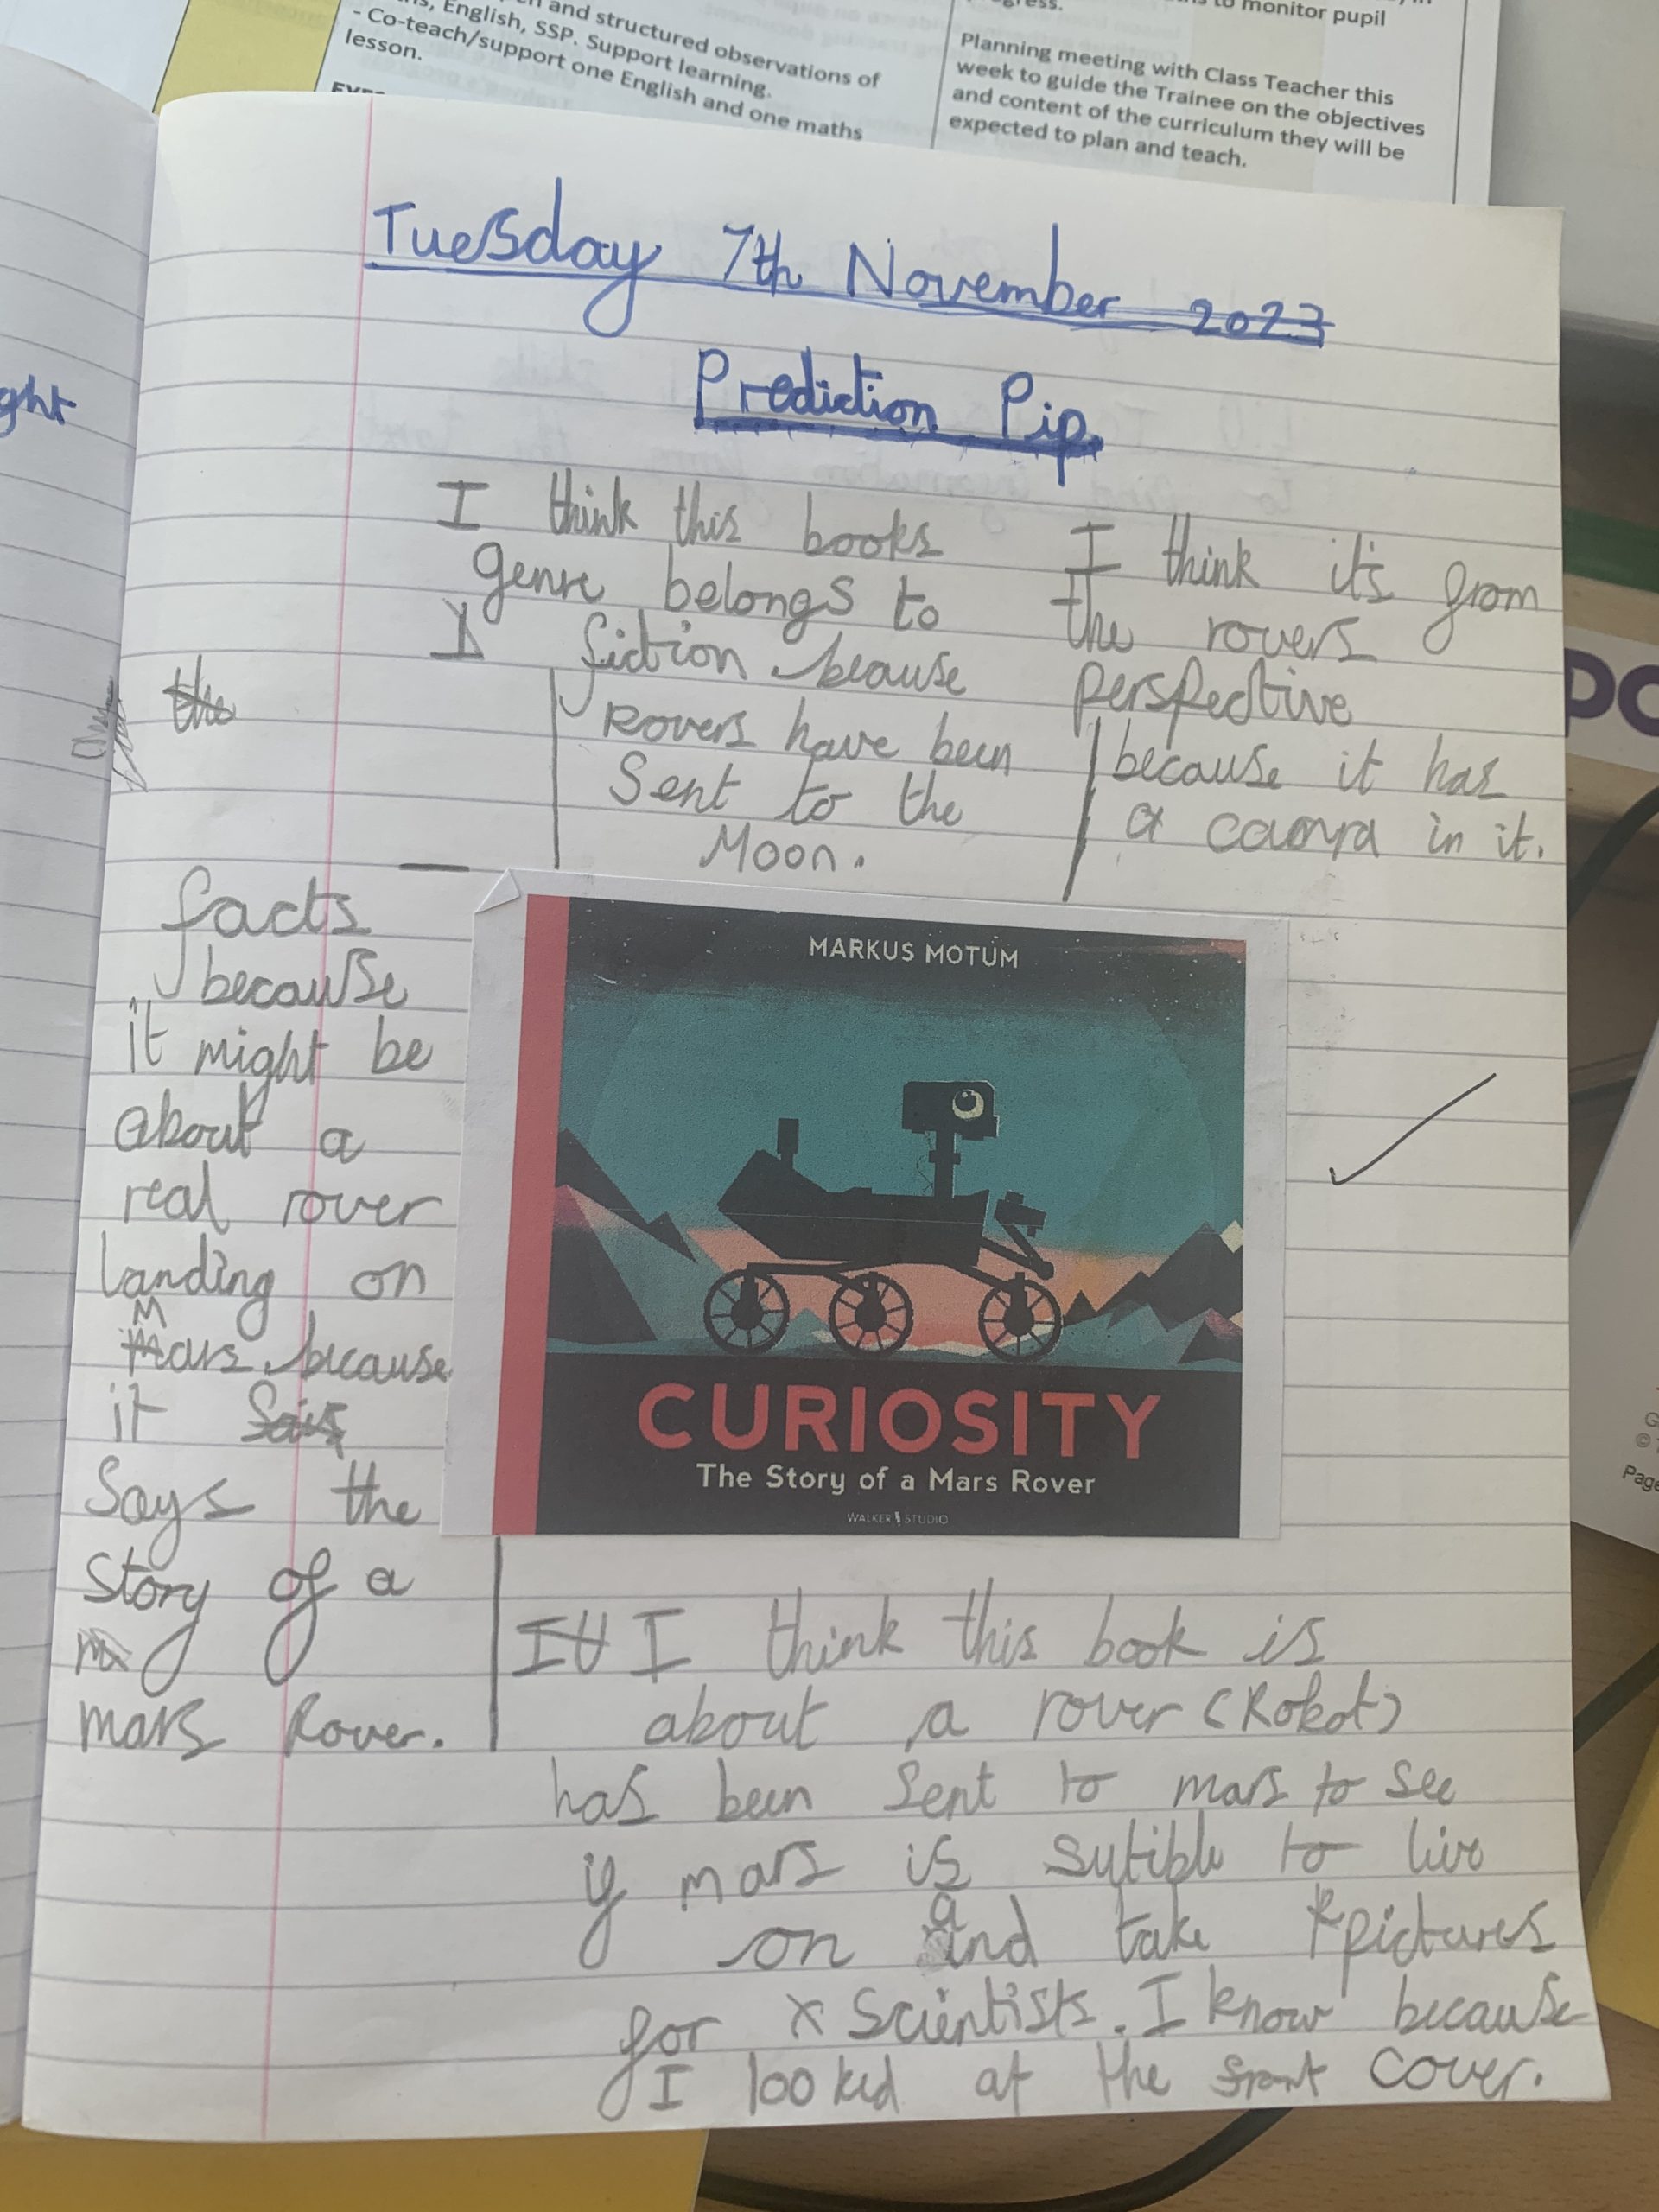 n and structured observations of
English, SSP. Support learning.
- Co-teach/support one English and one maths
lesson.
to monitor pupil
Planning meeting with Class Teacher this
week to guide the Trainee on the objectives
and content of the curriculum they will be
expected to plan and teach.
ght
Tuesday 7th November 2023
Prediction Pip
I think this books
genre belongs to
fiction beause
Rovers have been
Sent to the
Moon.
I think it's from
the rovers
perspective
because it has
a camra in it.
the
facts
because
it might be
about a
real rover
landing on
Mars because
it
Says the
Story of a
mars Rover.
MARKUS MOTUM
CURIOSITY
The Story of a Mars Rover
WALKER STUDIO
I think this book is
about a rover (Robot)
has been Sent to mars to see
if mars is sutible to live
on and take pictures
for x Scientists. I know because
I looked at the front cover.
PO
Page